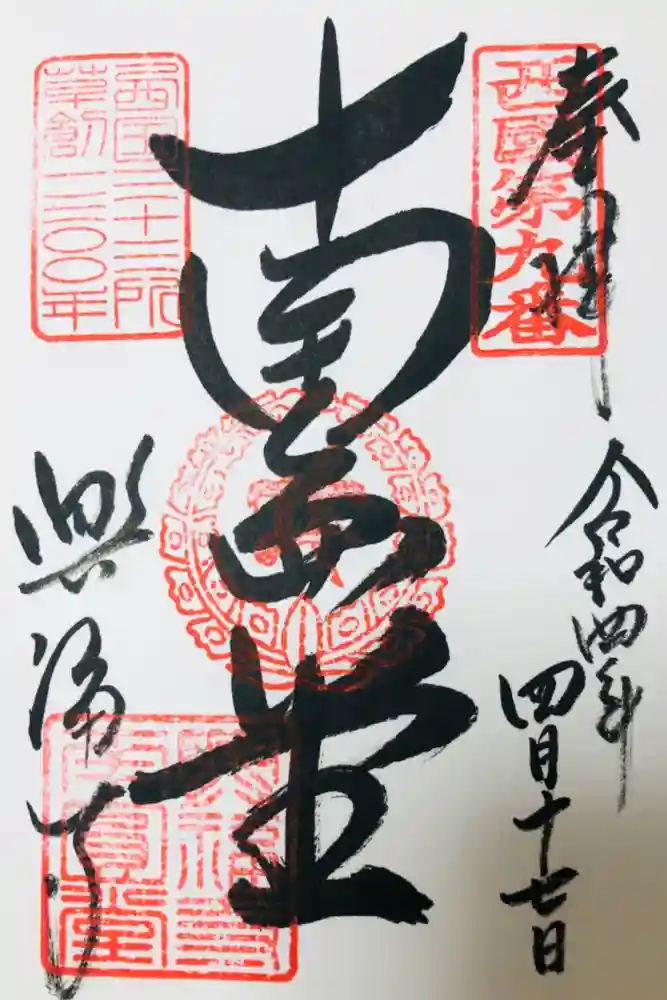 奉拝
西國第九番
令和四年
四月十七日
南圓堂
西国三十三所
草創一三〇〇年
興福寺
興福寺
南圓堂